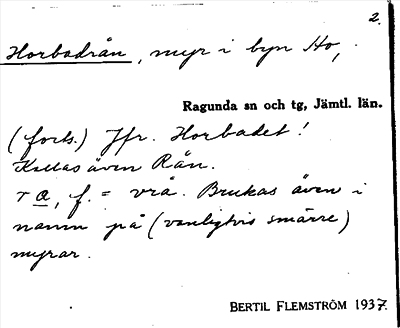 2.
Horbodrån, myr i byn Ho,
Ragunda sn och tg, Jämtl. län.
(forts.) Jfr. Horbodet!
Kallas även Rån.
ra, f. = vrå. Brukas även i
namn på (vanligtvis smärre)
myrar.
BERTIL FLEMSTRÖM 1937.